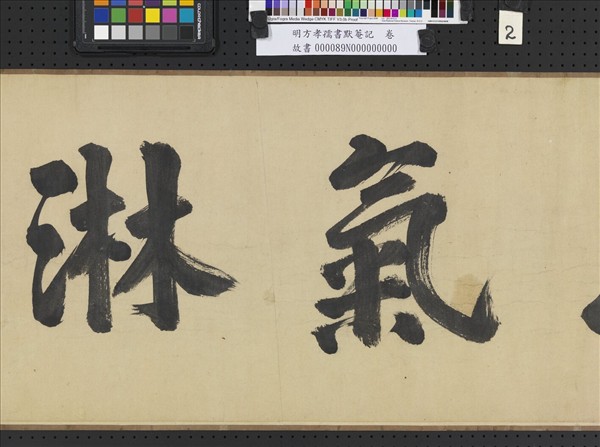 明方孝孺書默菴記 卷
故書 000089N000000000
2
氣淋